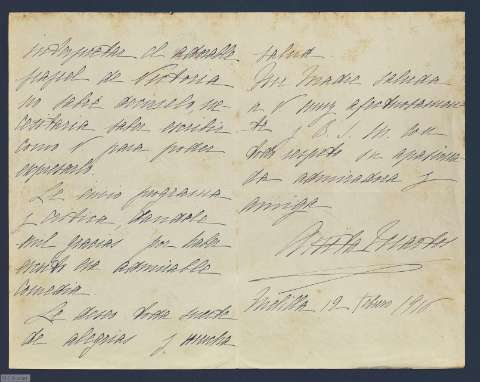 interpretar el adorable
papel de Victoria
no sabré decirselo ne-
cesitaria saber escribir
como V para poder
expresarlo.
Le envio programa
y critica, dandole
mil gracias por haber
escrito tan admirable
comedia
Le deseo toda suerte
de alegrias y mucha
salud
Mi Madre saluda
a V muy afectuosamen-
te y B. S. M. con
todo respeto su apasiona-
da admiradora y
amiga
Melilla 12 Febrero 1916